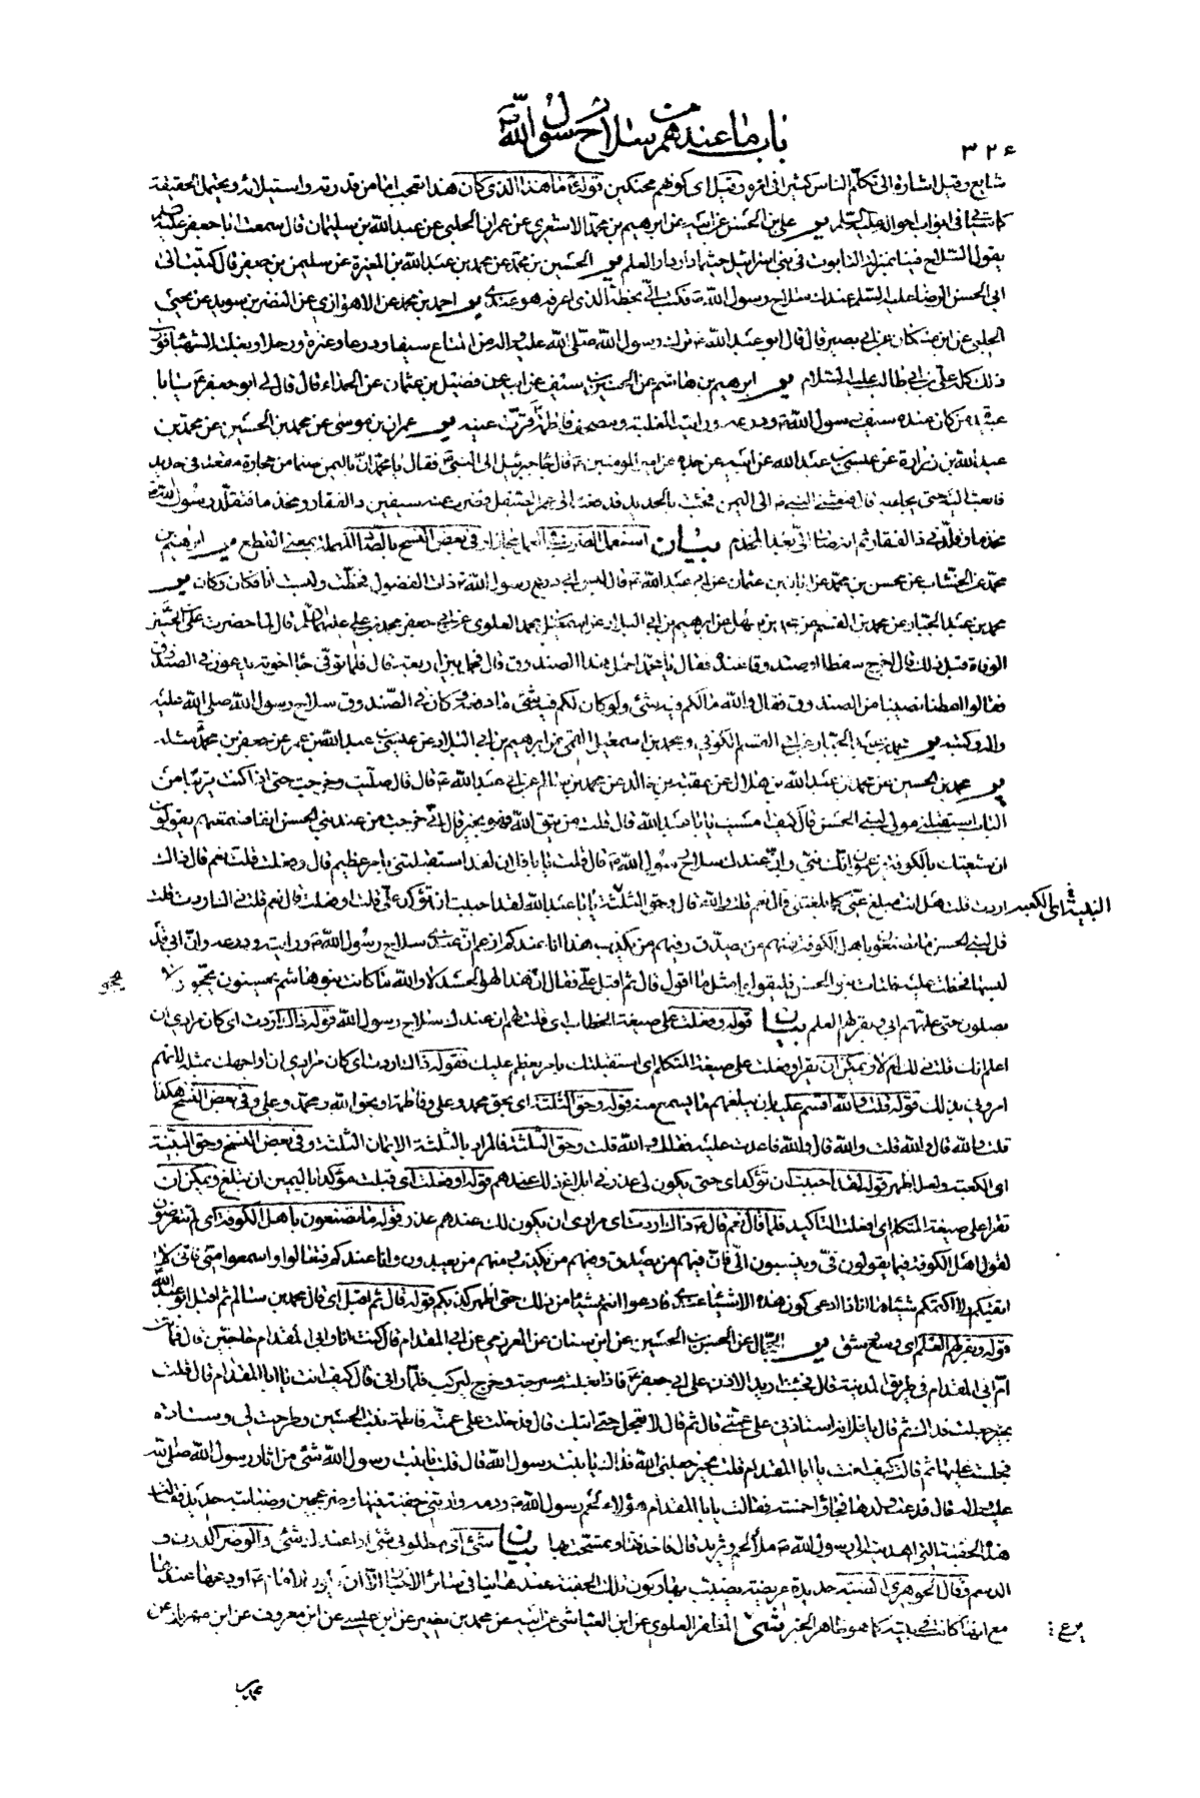 باب ما عندهم من سلاح رسول الله
٣٢٤
شايع وقيل اشارة الى تكلم الناس كثيرا في امره وقيل اى كونهم محنكين قوله ما هذا الذى كان هذا تعجب اما من قدرته واستيلائه ويحتمل الحقيقة
كما شيئا في ابواب احواله عليه السلم ير على بن الحسن عن ابيه عن ابرهيم بن محمد الاشعري عن عمران الحلبي عن عبد الله بن سليمان قال سمعت ابا جعفر عليه السلم
يقول السلاح فينا بمنزلة التابوت في بني اسرائيل حيثما دار دار العلم ير الحسين بن محمد عن محمد بن عبد الله بن المغيرة عن سليمن بن جعفر قال كتبت الى
ابي الحسن الرضا عليه السلم عندك سلاح رسول الله فكتب الى بخطه الذى اعرفه هو عندى ير احمد بن محمد عن الاهوازي عن النضر بن سويد عن يحيى
الحلبي عن ابن مسكان عن ابي بصير قال قال ابو عبد الله ترك رسول الله صلى الله عليه واله من المتاع سيفا ودرعا وعنزة ورحلا وبغلته الشهباء فورث
ذلك كله علي بن ابي طالب عليه السلام ير ابرهيم بن هاشم عن الحسين بن سيف عن ابيه عن فضيل بن عثمان عن الحذاء قال قال لي ابو جعفر يا با
عبيدة من كان عنده سيف رسول الله ودرعه ورايته المغلبة ومصحف فاطمة قرت عينه ير عمران بن موسى عن محمد بن الحسين عن محمد بن
عبد الله بن زرارة عن عيسى بن عبد الله عن ابيه عن جده عن امير المومنين قال جاء جبرئيل الى النبي فقال يا محمد ان باليمن صنما من حجارة مقعد في حديد
فابعث اليه حتى يجاء به قال فبعثنى النبي الى اليمن فجئت بالحديد فدفعته الى عمر الصيقل فضرب عنه سيفين ذا الفقار ومخذما فتقلد رسول الله
مخذما وقلدني ذا الفقار ثم انه صار الى بعد المخذم بيان استعمل الضرب في العمل مجازا وفي بعض النسخ بالصاد المهملة بمعنى القطع ير ابرهيم بن
محمد عن الخشاب عن محسن بن محمد عن ابان بن عثمان عن ابي عبد الله قال لبس ابي درع رسول الله ذات الفضول فخطت ولبست انا فكان وكان ير
محمد بن عبد الجبار عن محمد بن القسم عن ابرهيم بن ابي البلاد عن اسمعيل بن محمد العلوي عن ابي جعفر محمد بن علي عليهما السلم قال لما حضرت علي بن الحسين
الوفاة قبل ذلك قال اخرج سفطا او صندوقا عنده فقال يا محمد احمل هذا الصندوق قال فحمل بين اربعة قال فلما توفي جاء اخوته يدعون في الصندوق
فقالوا اعطنا نصيبنا من الصندوق فقال والله ما لكم فيه شئ ولو كان لكم فيه شئ ما دفعه وكان في الصندوق سلاح رسول الله صلى الله عليه
واله وكتبه ير محمد بن عبد الجبار عن ابي القسم الكوفي ومحمد بن اسمعيل القمي عن ابرهيم بن ابي البلاد عن عيسى بن عبد الله بن عمر عن جعفر بن محمد مثله
ير محمد بن الحسين عن محمد بن عبد الله بن هلال عن عقبة بن خالد عن محمد بن سالم عن ابي عبد الله قال قال صليت وخرجت حتى اذا كنت قريبا من
الباب استقبلني مولى لبني الحسن قال كيف امسيت يا ابا عبد الله قال قلت من يتق الله فهو بخير قال اني خرجت من عند بني الحسن انفا فسمعتهم يقولون
ان شيعتك بالكوفة يزعمون انك نبي وان عندك سلاح رسول الله قال قلت يا با فلان لقد استقبلتني بامر عظيم قال وفعلت قلت نعم قال ذاك
اردت قلت هل انت مبلغ عني كما بلغتني قال نعم قلت والله قال وحق الثلثة يا ابا عبد الله لقد احببت ان تؤكد علي قلت او فعلت قال نعم قلت ذاك اردت قلت
البنية اى الكعبة
قل لبني الحسن ما تصنعون باهل الكوفة فمنهم من يصدق وفيهم من يكذب هذا انا عندكم ازعم ان عندي سلاح رسول الله ورايته ودرعه وان ابي قد
لبسها فخطت عليه فليات بنو الحسن فليقولوا مثل ما اقول قال ثم اقبل علي فقال ان هذا لهو الحسد لا والله ما كانت بنو هاشم يحسنون يحجون ولا
يصلون حتى علمهم ابي وبقر لهم العلم بيان قوله وفعلت على صيغة الخطاب اى قلت لهم ان عندك سلاح رسول الله قوله ذاك اردت اى كان مرادى ان
اعلم انك قلت ذلك ام لا ويمكن ان يقرا وفعلت على صيغة المتكلم اى استقبلتك بامر عظيم عليك فقوله ذاك اردت اى كان مرادى ان اواجهك بمثله لانهم
امروني بذلك قوله قلت والله اقسم عليه بان يبلغهم ما يسمع منه قوله وحق الثلثة اى بحق محمد وعلى وفاطمة او بحق الله ومحمد وعلى وفي بعض النسخ هكذا
قلت والله قال والله قلت والله قال والله فاعدت عليه فقال والله قلت وحق الثلثة فالمراد بالثلثة الايمان الثلثة وفي بعض النسخ وحق البنية
اى الكعبة ولعله اظهر قوله لقد احببت ان تؤكد اى حتى يكون لي عذر في ابلاغ ذلك عندهم قوله او فعلت اى قبلت مؤكدا باليمين ان تبلغ ويمكن ان
تقرا على صيغة المتكلم اى افعلت التاكيد فلما قال نعم قال ذاك اردت اى مرادى ان يكون لك عندهم عذر قوله ما تصنعون باهل الكوفة اى لم تتعرضون
لقول اهل الكوفة فيما يقولون في وينسبون الى فان فيهم من يصدق ومنهم من يكذب وانا عندكم فتعالوا واسمعوا مني فاني لا
اتقيكم ولا اكتمكم شيئا ها انا ذا ادعى كون هذه الاشياء عندى فادعوا انتم شيئا من ذلك حتى اظهر كذبكم قوله قال ثم اقبل اى قال محمد بن سالم ثم اقبل ابو عبد الله
قوله وبقر لهم العلم اى وسع وشق ير الحجال عن الحسن بن الحسين عن ابن سنان عن العرزمي عن ابي المقدام قال كنت انا وابي المقدام حاجين قال فماتت
ام ابي المقدام في طريق المدينة قال فجئت اريد الاذن على ابي جعفر فاذا بغلته مسرجة وخرج ليركب فلما راني قال كيف انت يا ابا المقدام قال قلت
بخير جعلت فداك ثم قال يا فلانة استاذني على عمتي قال ثم قال لا تعجل حتى اتيك قال فدخلت على عمته فاطمة بنت الحسين وطرحت لي وسادة
فجلست عليها ثم قالت كيف انت يا ابا المقدام قلت بخير جعلني الله فداك يا بنت رسول الله قال قلت يا بنت رسول الله شئ من اثار رسول الله صلى الله
عليه واله قال فدعت ولدها فجاؤا خمسة فقالت يا با المقدام هؤلاء لحم رسول الله ودمه وارتني جفنة فيها وضر عجين وضبابته حديد فقالت
هذه الجفنة التي اهديت الى رسول الله ملأ لحم وثريد قال فاخذتها وتمسحت بها بيان شئ اى مطلوبي شئ او اعندك شئ والوضر الدرن و
الدسم وقال الجوهري الضبة حديدة عريضة يضبب بها
مع انها كانت في بيته كما هو ظاهر الخبر المظفر العلوي عن ابن العياشي عن ابيه عن محمد بن نصير عن ابن عيسى عن ابن معروف عن ابن مهزيار عن
محمد بن